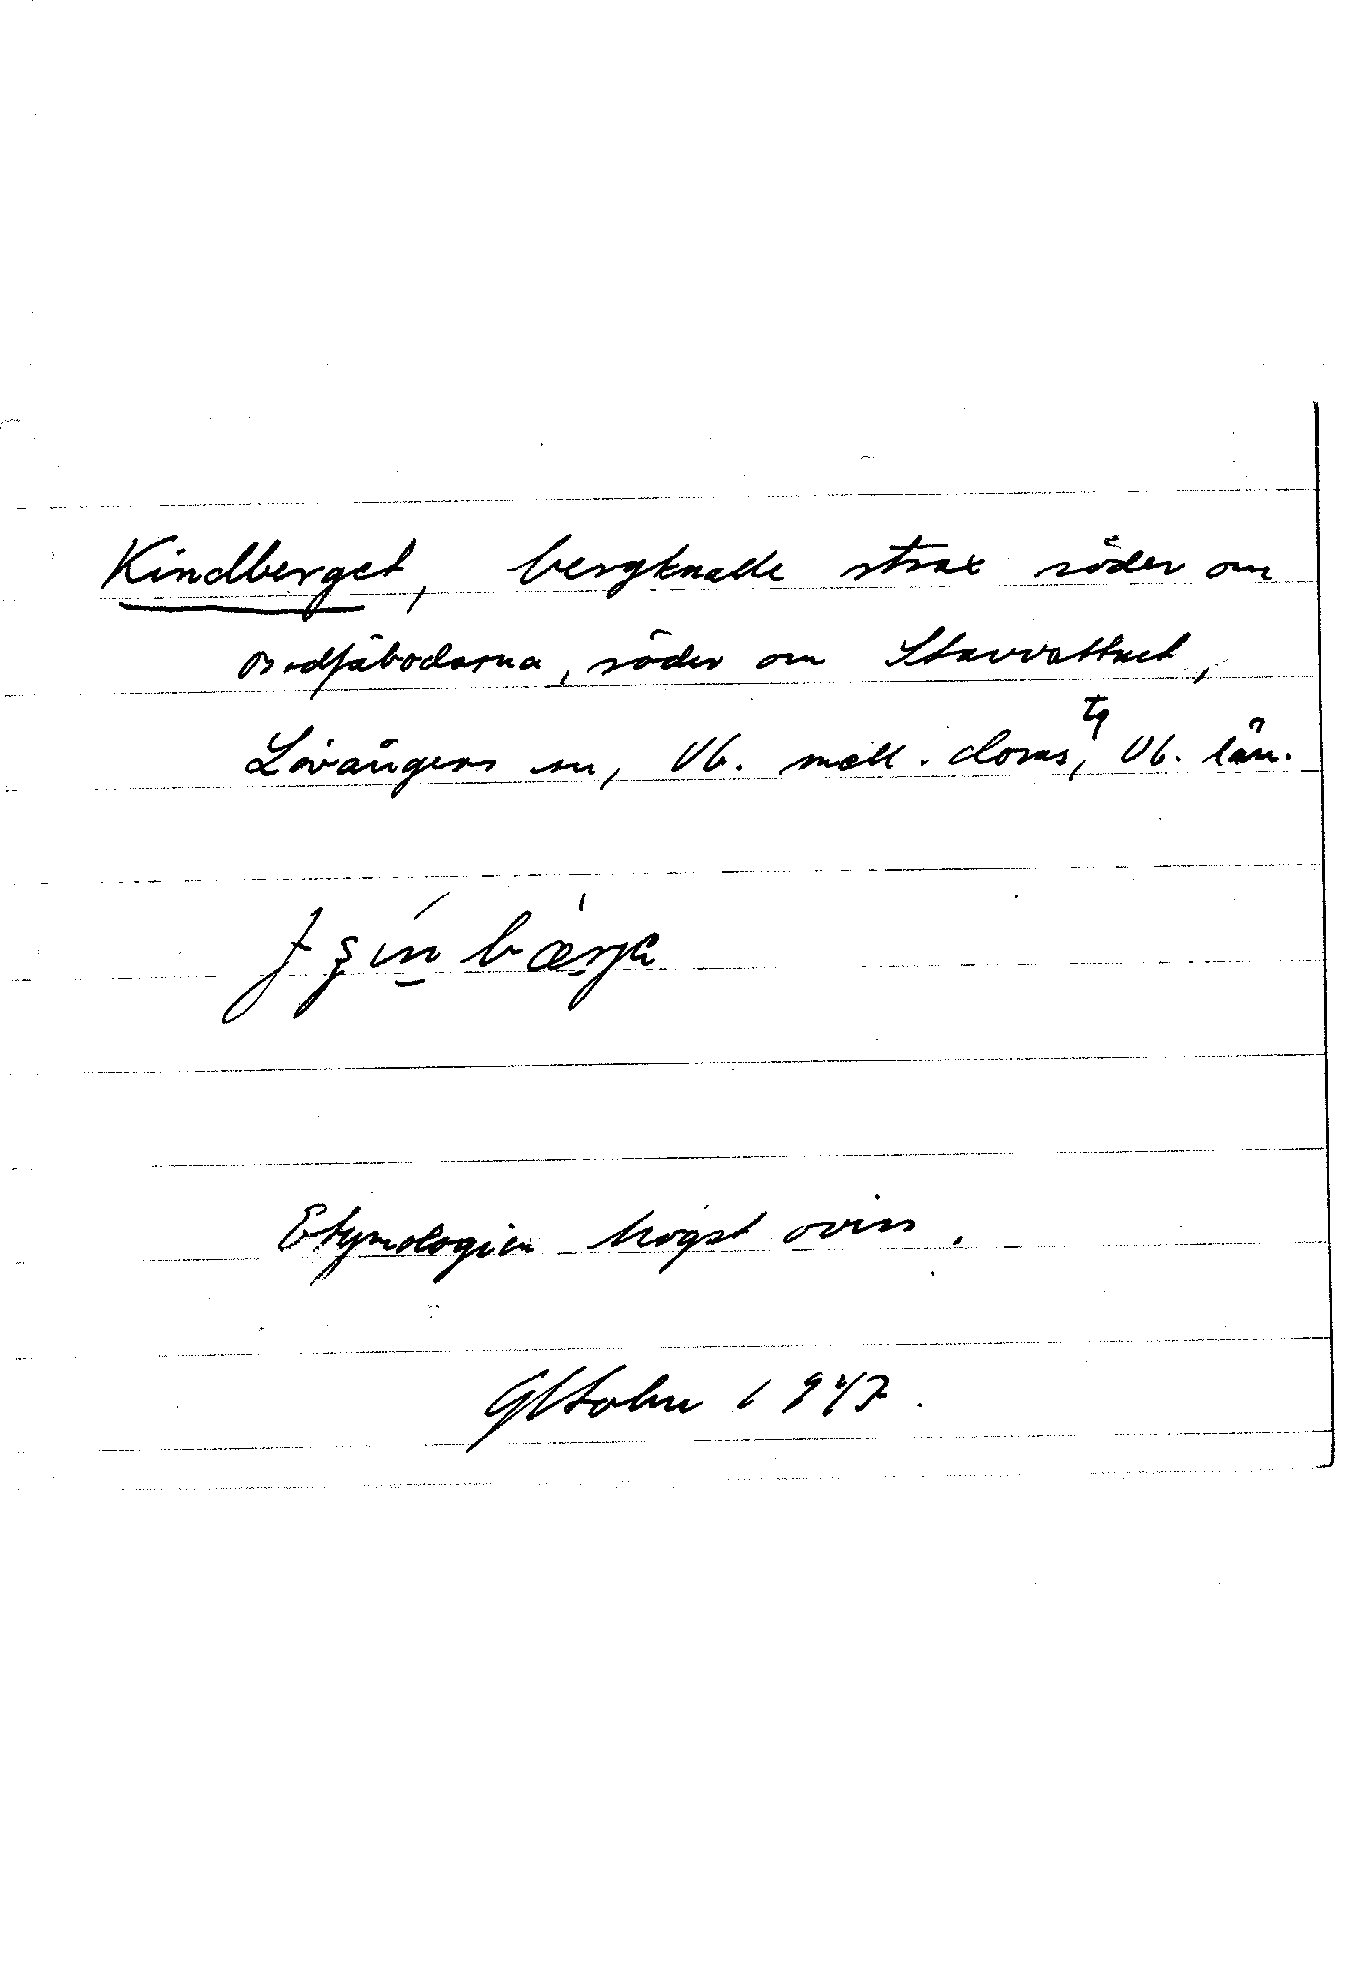 Kindberget, bergknalle strax söder om
Bodfäbodarna, söder om Stavvattnet,
Lövångers sn, Vb. mell. doms, tg Vb. län.
Etymologien högst oviss.
1947.